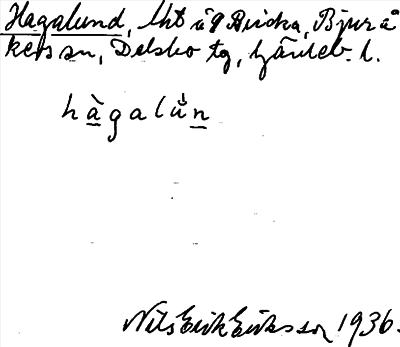 Hagalund, lht å g Älvåsa, Bjurå
kers sn, Delsbo tg, Gävleb. l.
hàgalùn
Nils Erik Eriksson 1936.